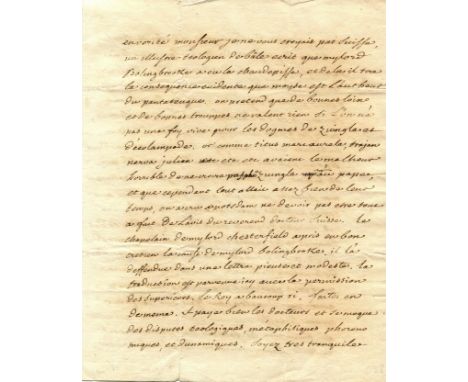 en verité monsieur je ne vous croyais pas suisse,
un illustre teologien de bâle ecrit que mylord
Bolingbroke a eu la chaudepisse, et de la il tire
la consequence evidente que moyse est l'autheur
du pentateuque. on pretend que de bonnes loix
et de bonnes trouppes ne valent rien si l'on n'a
pas une foy vive pour les dogmes de Zuinglas et
d'écolampade. or comme titus marc aurele, trajan
nerva julien etc etc avaient le malheur
horrible de ne croire zuingle papae,
et que cependant tout allait assez bien de leur
temps, on a cru a Potsdam ne devoir pas etre tout
a fait de l'avis du reverend docteur suisse. le
chapelain de mylord chesterfield a pris en bon
cretien la cause de mylord bolingbroke, il l'a
deffendue dans une lettre pieuse et modeste, la
traduction est parvenue icy avec la permission
des superieurs, le Roy a beaucoup ri, faites en
de meme. et payez bien les docteurs et se moque
des disputes teologiques, metaphisiques phoreno
miques, et dynamiques, soyez tres tranquile